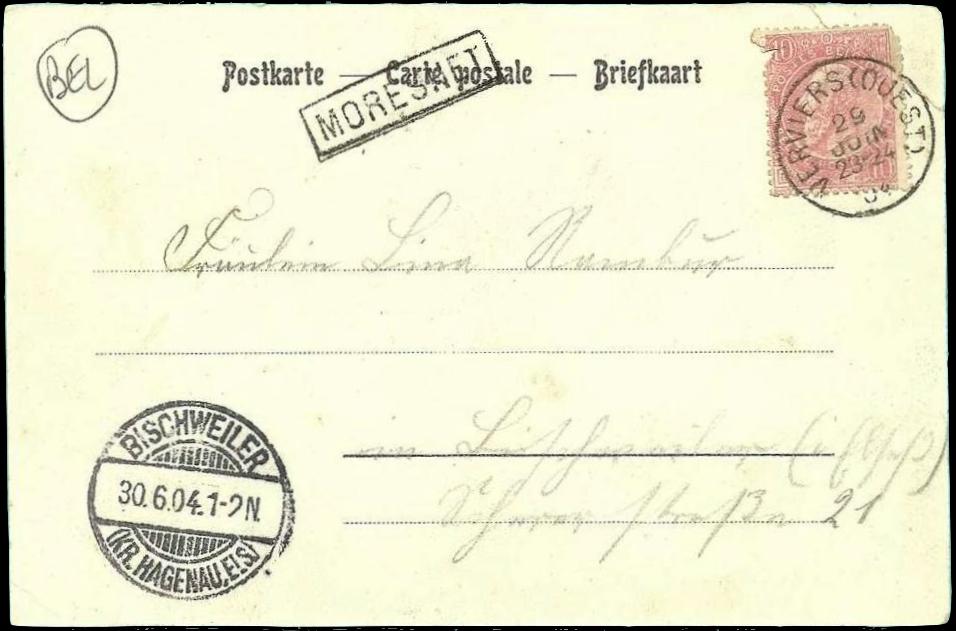 BEL
Postkarte — Carte postale — Briefkaart
MORESNET
10
VERVIERS (OUEST)
29
JUIN
23-24
04
Fräulein Lina Rambur
in Bischweiler (i/Els.)
Scherer straße 21
BISCHWEILER
30.6.04.1-2N.
(KR. HAGENAU, ELS)